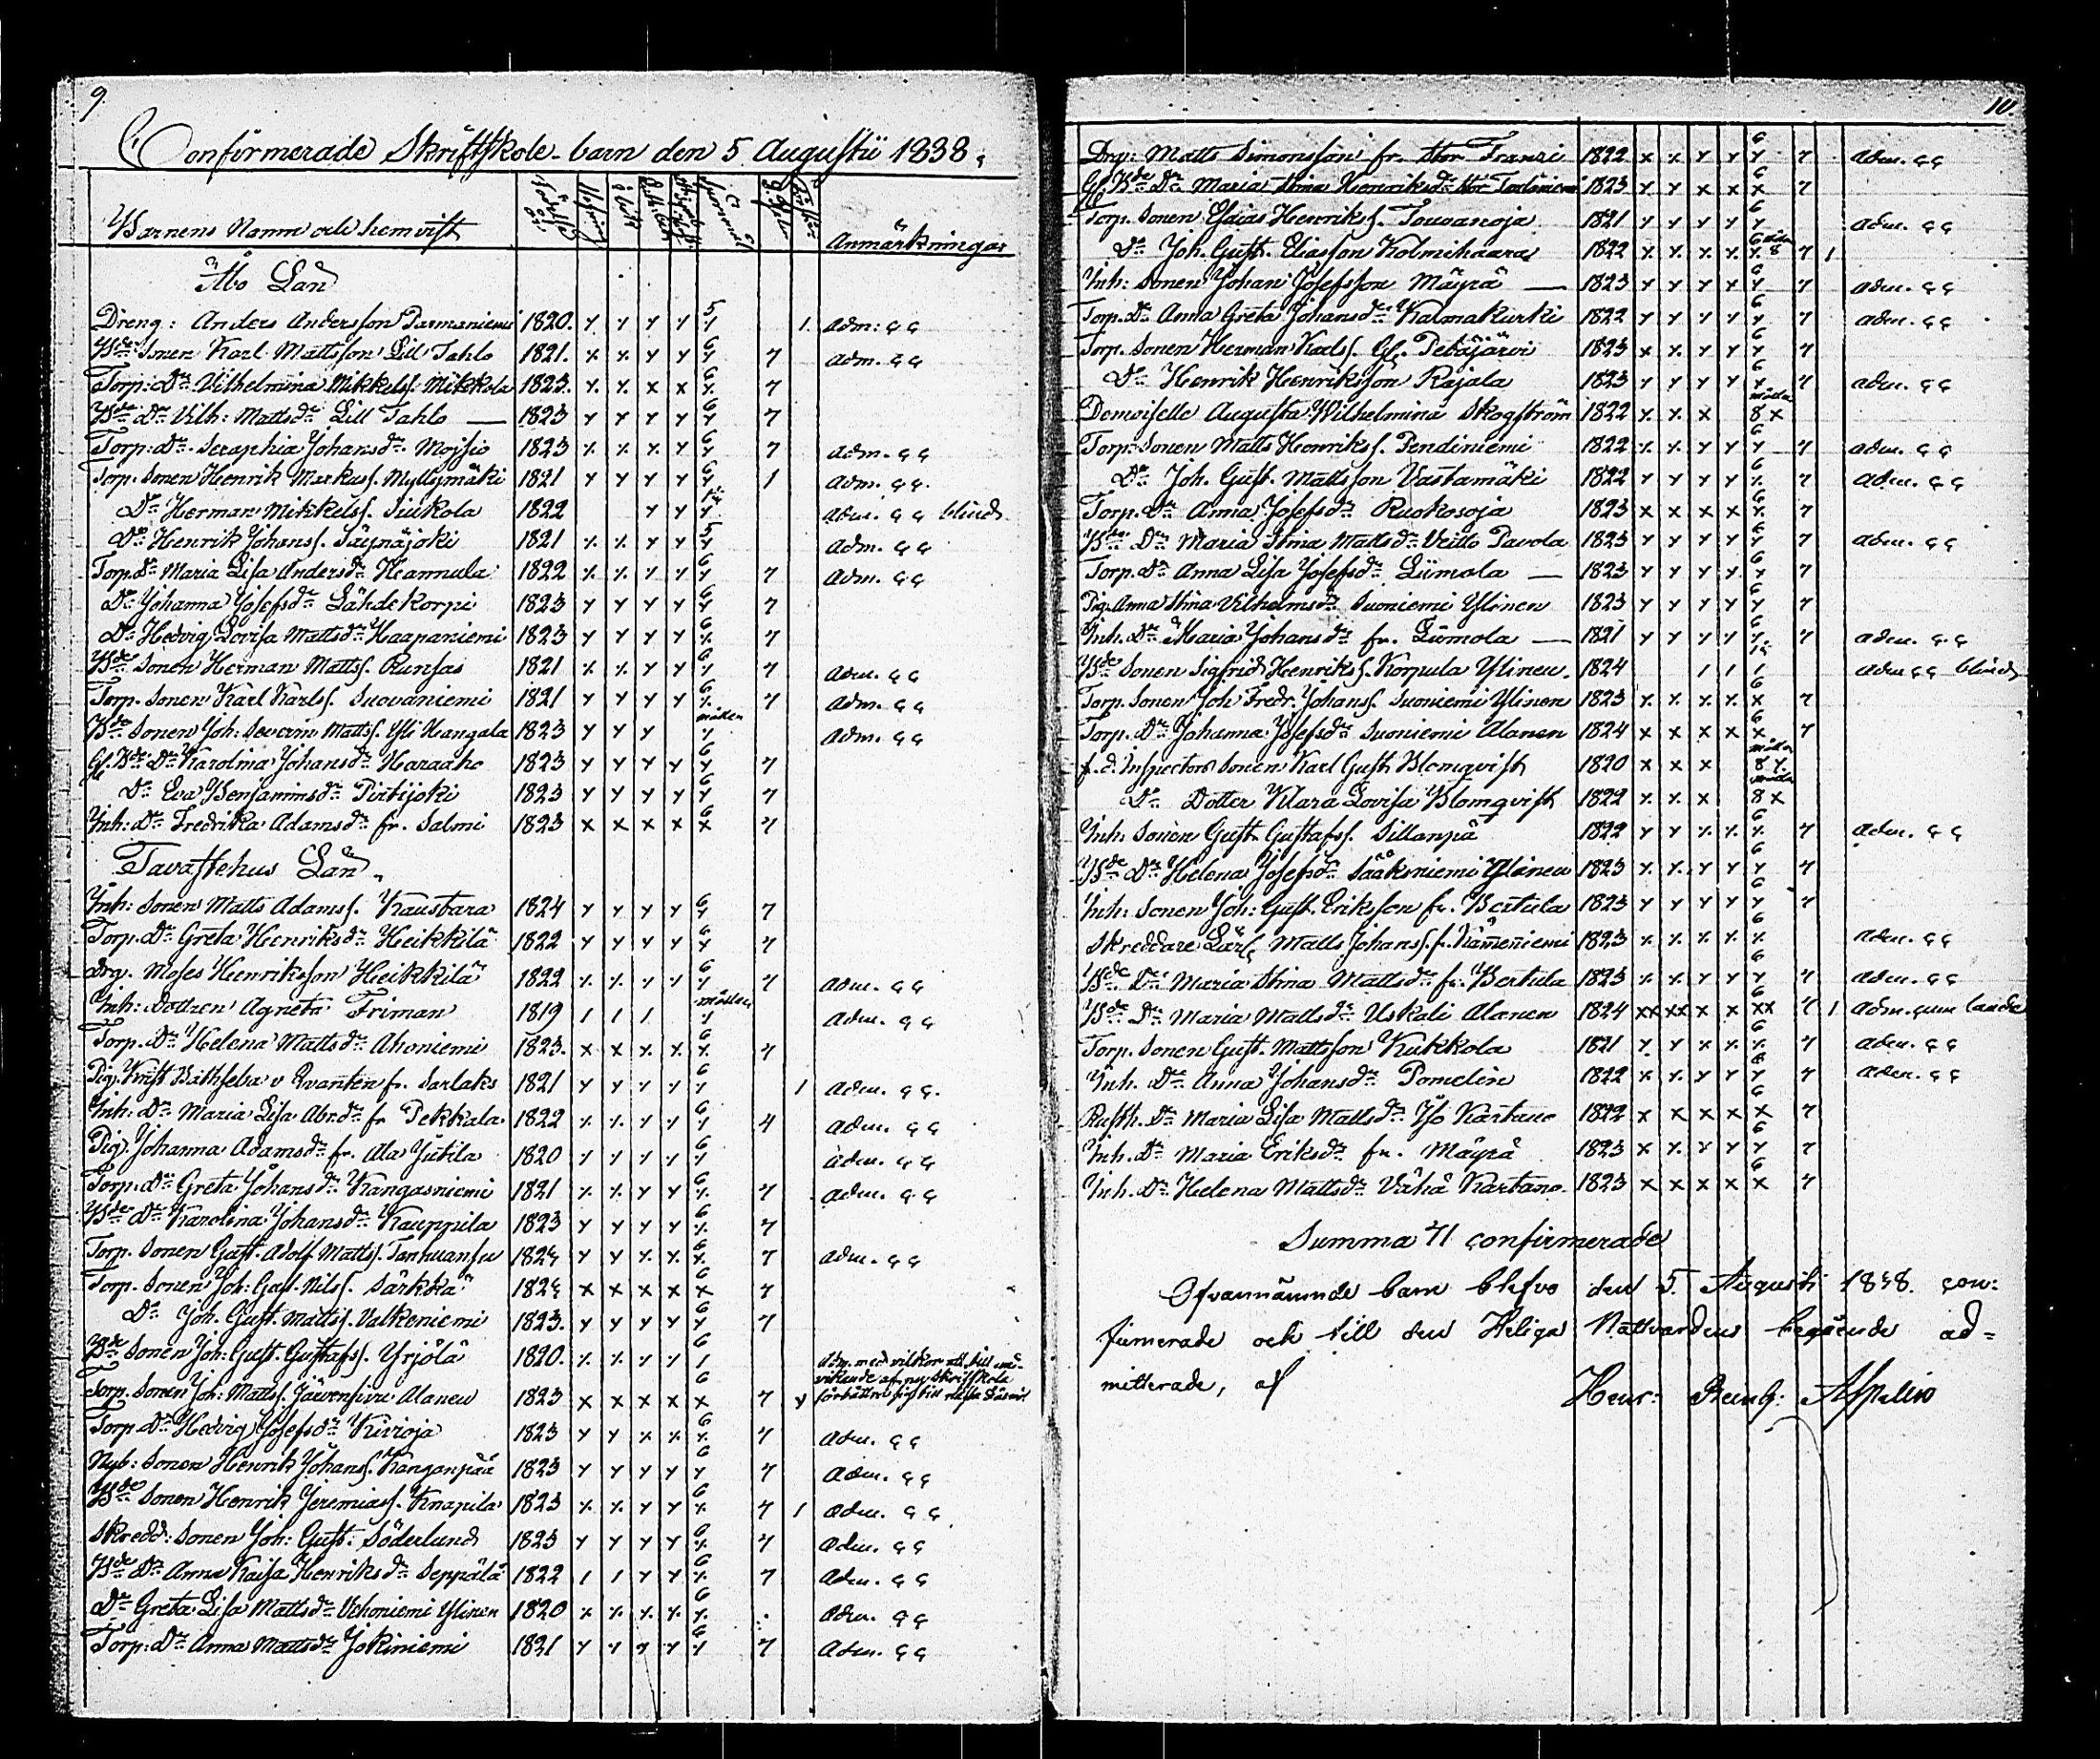 9.
Confirmerade Skriftskole-barn den 5 Augustii 1838.
Barnens Namn och hemvist
Anmärkningar
Åbo Län
Dreng: Anders Andersson Parmaniemi 1820. 5 1. adm: çç
Bde Sonen Karl Mattsson Lill Tahlo 1821. 6 7 adm. çç
Torp: Dr Vilhelmina Mikkelss. Mikkola 1823. 6 7
Bde Dr Vilh: Mattsdr Lill Tahlo — 1823 6 7
Torp: Dr Seraphia Johansdr Mojsio 1823 6 7 adm. çç
Torp. Sonen Henrik Markuss. Myllymäki 1821 6 1 adm. çç.
Do Herman Mikkelss. Juikola 1822 adm. çç blind
Do Henrik Johanss. Jäynäjoki 1821 5 adm. çç
Torp. Dr Maria Lisa Andersdr Hannula 1822 6 7 adm. çç
Dr Johanna Josefsdr Lähdekorpi 1823 6 7
Dr Hedvig Lovisa Mattsdr Haapaniemi 1823 6 7
Bde Sonen Herman Mattss. Runsas 1821 6 7 adm. çç
Torp. Sonen Karl Karlss. Suovaniemi 1821 6 7 adm. çç
Bde Sonen Joh: Severin Mattss. Yli Kangala 1823 adm. çç
Bde Dr Karolina Johansdr Haraaho 1823 6 7
Dr Eva Benjaminsdr Pirttijoki 1823 6 7
Inh: Dr Fredrika Adamsdr fr. Salmi 1823 x x x x x 6 7
Tavastehus Län
Inh: Sonen Matts Adamss. Kaustara 1824 6 7
Torp. Dr Greta Henriksdr Heikkilä 1822 6 7
Drg. Moses Henriksson Heikkilä 1822 6 7 adm. çç
Inh: Dottren Agneta Friman 1819 1 1 1 adm. çç
Torp. Dr Helena Mattsdr Ahoniemi 1823. 6 7
Pig. Krist Bathseba v Qvanten fr. Sarlaks 1821 6 1 adm. çç.
Inh: Dr Maria Lisa Abr.dr fr Pekkala 1822 6 4 adm. çç
Pig: Johanna Adamsdr fr. Ala Jutila 1820 6 adm. çç
Torp: Dr Greta Johansdr Kangasniemi 1821 6 7 adm. çç
Bde Dr Karolina Johansdr Kauppila 1823 6 7
Torp. Sonen Gust. Adolf Mattss. Tanhuansu 1824 6 7 adm. çç
Torp. Sonen Joh: Gust. Nilss. Särkkä 1824 x x x x x 6 7
Do Joh. Gust. Mattss. Valkeniemi 1823. 6 7
Bde Sonen Joh: Gust. Gustafss. Yrjölä 1820. 6 adm. med vilkor att till
af ny Skriftskola
Torp. Sonen Joh: Mattss. Järvensivu Alanen 1823 x x x x x 6 7 förbättra sig till nästa
Torp Dr Hedvig Josefsdr Kivioja 1823 6 7 adm. çç
Nyb: Sonen Henrik Johanss. Kanganpää 1823 6 7 adm. çç
Bde Sonen Henrik Jeremiass. Knapila 1823 6 7 1 adm. çç
Skredd: Sonen Joh: Gust: Söderlund 1823 6 7 adm. çç
Bde Dr Anna Kaisa Henriksdr Seppälä 1822 6 7 adm. çç
Dr Greta Lisa Mattsdr Vehoniemi Ylinen 1820 6 adm. çç
Torp: Dr Anna Mattsdr Jokiniemi 1821 6 7 adm. çç
10.
Drg: Matts Simonsson fr. Stor Franzi 1822 6 7 adm. çç
Bde Dr Maria Stina Henriksdr Stor 1823 6 7
Torp. Sonen Esaias Henrikss. Touvanoja 1821 6 adm. çç
Do Joh. Gust. Eliasson Kolmihaara 1822 6 8 7 1
Inh: Sonen Johan Josefsson Mäyrä — 1823 6 7 adm. çç
Torp. Dr Anna Greta Johansdr Kalmakurki 1822 6 7 adm. çç
Torp. Sonen Herman Karlss. Petäjärvi 1823 6 7
Do Henrik Henriksson Rajala 1823 6 7 adm. çç
Demoiselle Augusta Wilhelmina Skogström 1822 8 x
Torp: Sonen Matts Henrikss. Pendiniemi 1822 6 7 adm. çç
Do Joh. Gust. Mattsson Vastamäki 1822 6 7 adm. çç
Torp. Dr Anna Josefsdr Ruokosoja 1823 x x x x x 6 7
Bde Dr Maria Stina Mattsdr Veitto Pavola 1823 6 7 adm. çç
Torp. Dr Anna Lisa Josefsdr Liimola — 1823 6 7
Pig. Anna Stina Vilhelmsdr Suoniemi Ylinen 1823 6 7
Inh. Dr Maria Johansdr fr. Liimola — 1821 6 7 adm. çç
Bde Sonen Sigfrid Henrikss. Korpula Ylinen. 1824 1 1 1 adm çç blind
Torp. Sonen Joh Fredr. Johanss. Suoniemi Ylinen 1823 6 7
Torp. Dr Johanna Josefsdr Suoniemi Alanen 1824 x x x x x 6 7
f.d. Inspectors Sonen Karl Gust Blomqvist 1820 x x x 8
Do Dotter Klara Lovisa Blomqvist 1822 8 x
Inh. Sonen Gust. Gustafss. Sillanpä 1822 6 7 adm. çç
Bde Dr Helena Josefsdr Sääksniemi Ylinen 1823 6 7
Inh: Sonen Joh: Gust. Eriksson fr. Bertula 1823 6 7
Skreddare Lärl. Matts Johanss. fr. Kämeniemi 1823 6 adm. çç
Bde Dr Maria Stina Mattsdr fr. Bertula 1823 6 7 adm. çç
Bde Dr Maria Mattsdr Uskali Alanen 1824 xx xx x x xx 6 1 adm. çum laude
Torp. Sonen Gust. Mattsson Kukkola 1821 6 7 adm. çç
Inh. Dr Anna Johansdr Pomelin 1822 6 7 adm. çç
Rusth. Dr Maria Lisa Mattsdr Iso Kartano 1822 x x x x x 6 7
Inh. Dr Maria Eriksdr fr. Mäyrä 1823 6 7
Inh. Dr Helena Mattsdr Vähä Kartano 1823 x x x x x 6 7
Summa 71 confirmerade
Ofvannämnde barn blefvo den 5. Augusti 1838. con:
firmerade och till den Heliga Nattvardens begående ad=
mitterade, af
Henr: Reinh: Aspelin